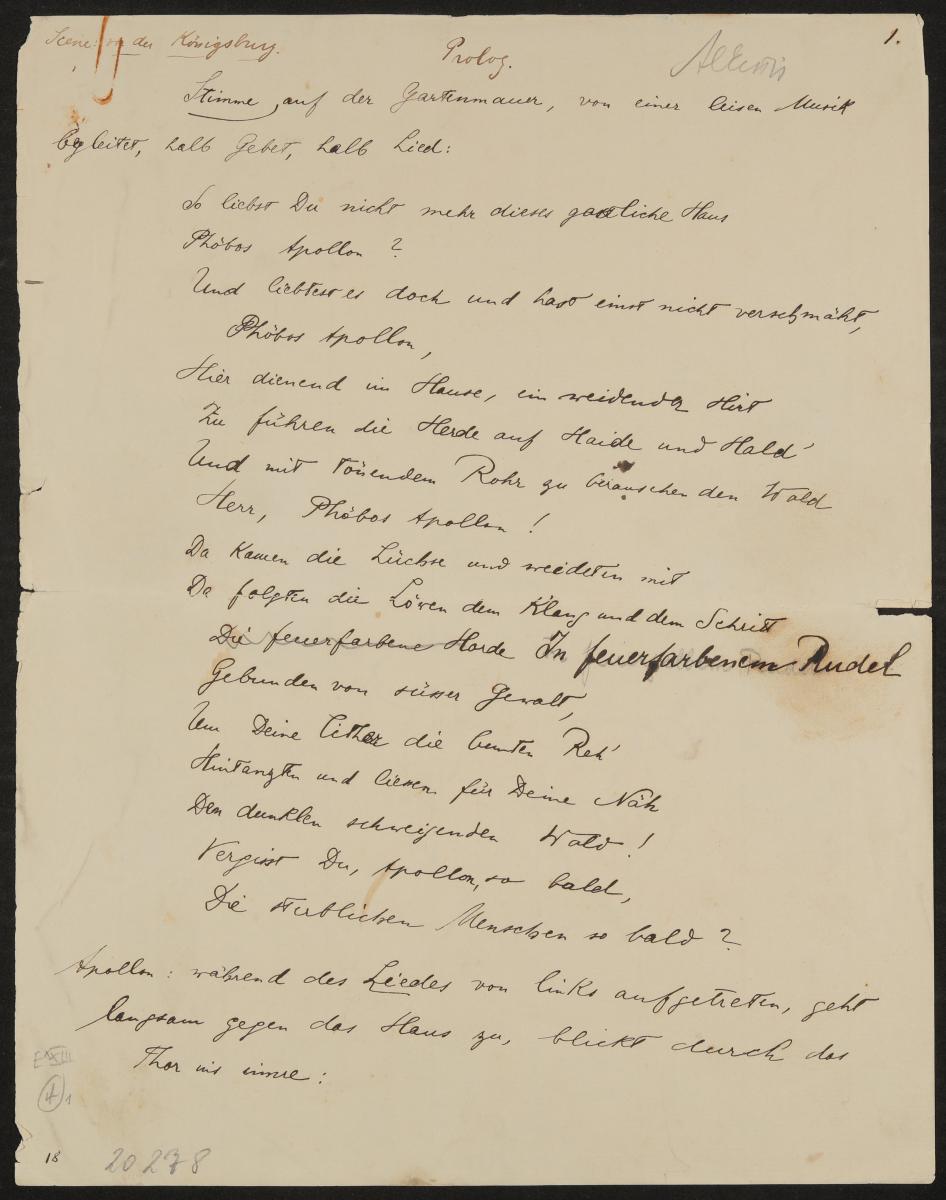 Scene: vor der Königsburg.
Prolog.
Alkestis
1.
Stimme, auf der Gartenmauer, von einer leisen Musik
begleitet, halb Gebet, halb Lied:
So liebst Du nicht mehr dieses gastliche Haus
Phöbos Apollon?
Und liebtest es doch und hast einst nicht verschmäht,
Phöbos Apollon,
Hier dienend im Hause, ein weidender Hirt
Zu führen die Herde auf Haide und Hald'
Und mit tönendem Rohr zu berauschen den Wald
Herr, Phöbos Apollon!
Da kamen die Lüchse und weideten mit
Da folgten die Löwen dem Klang und dem Schritt
Die feuerfarbene Horde In feuerfarbenem Rudel
Gebunden von süsser Gewalt,
Um Deine Cither die bunten Reh'
Hintanzten und liessen für Deine Näh
Den dunklen schweigenden Wald!
Vergisst Du, Apollon, so bald,
Die sterblichen Menschen so bald?
Apollon: während des Liedes von links aufgetreten, geht
langsam gegen das Haus zu, blickt durch das
Thor ins innre:
E XIII
4 1
18
20278